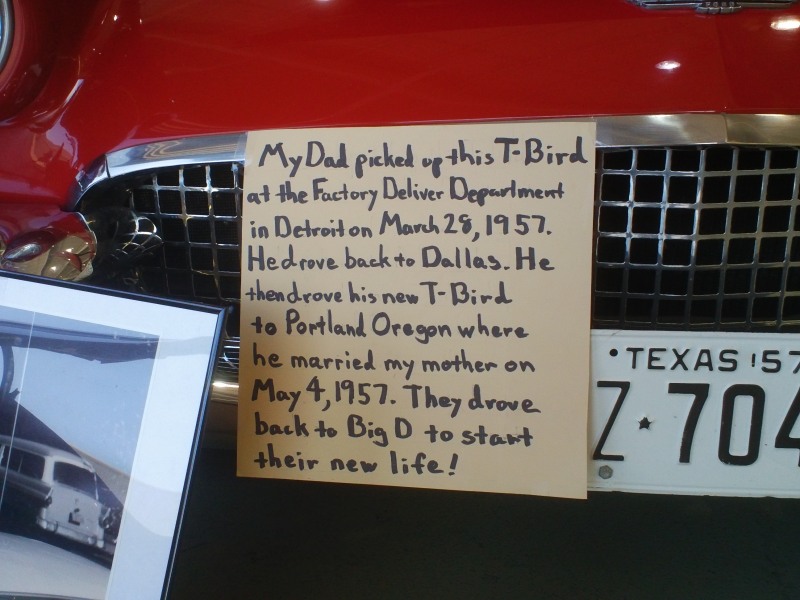 My Dad picked up this T-Bird
at the Factory Deliver Department
in Detroit on March 28, 1957.
He drove back to Dallas. He
then drove his new T-Bird
to Portland Oregon where
he married my mother on
May 4, 1957. They drove
back to Big D to start
their new life!
TEXAS '57
Z★704